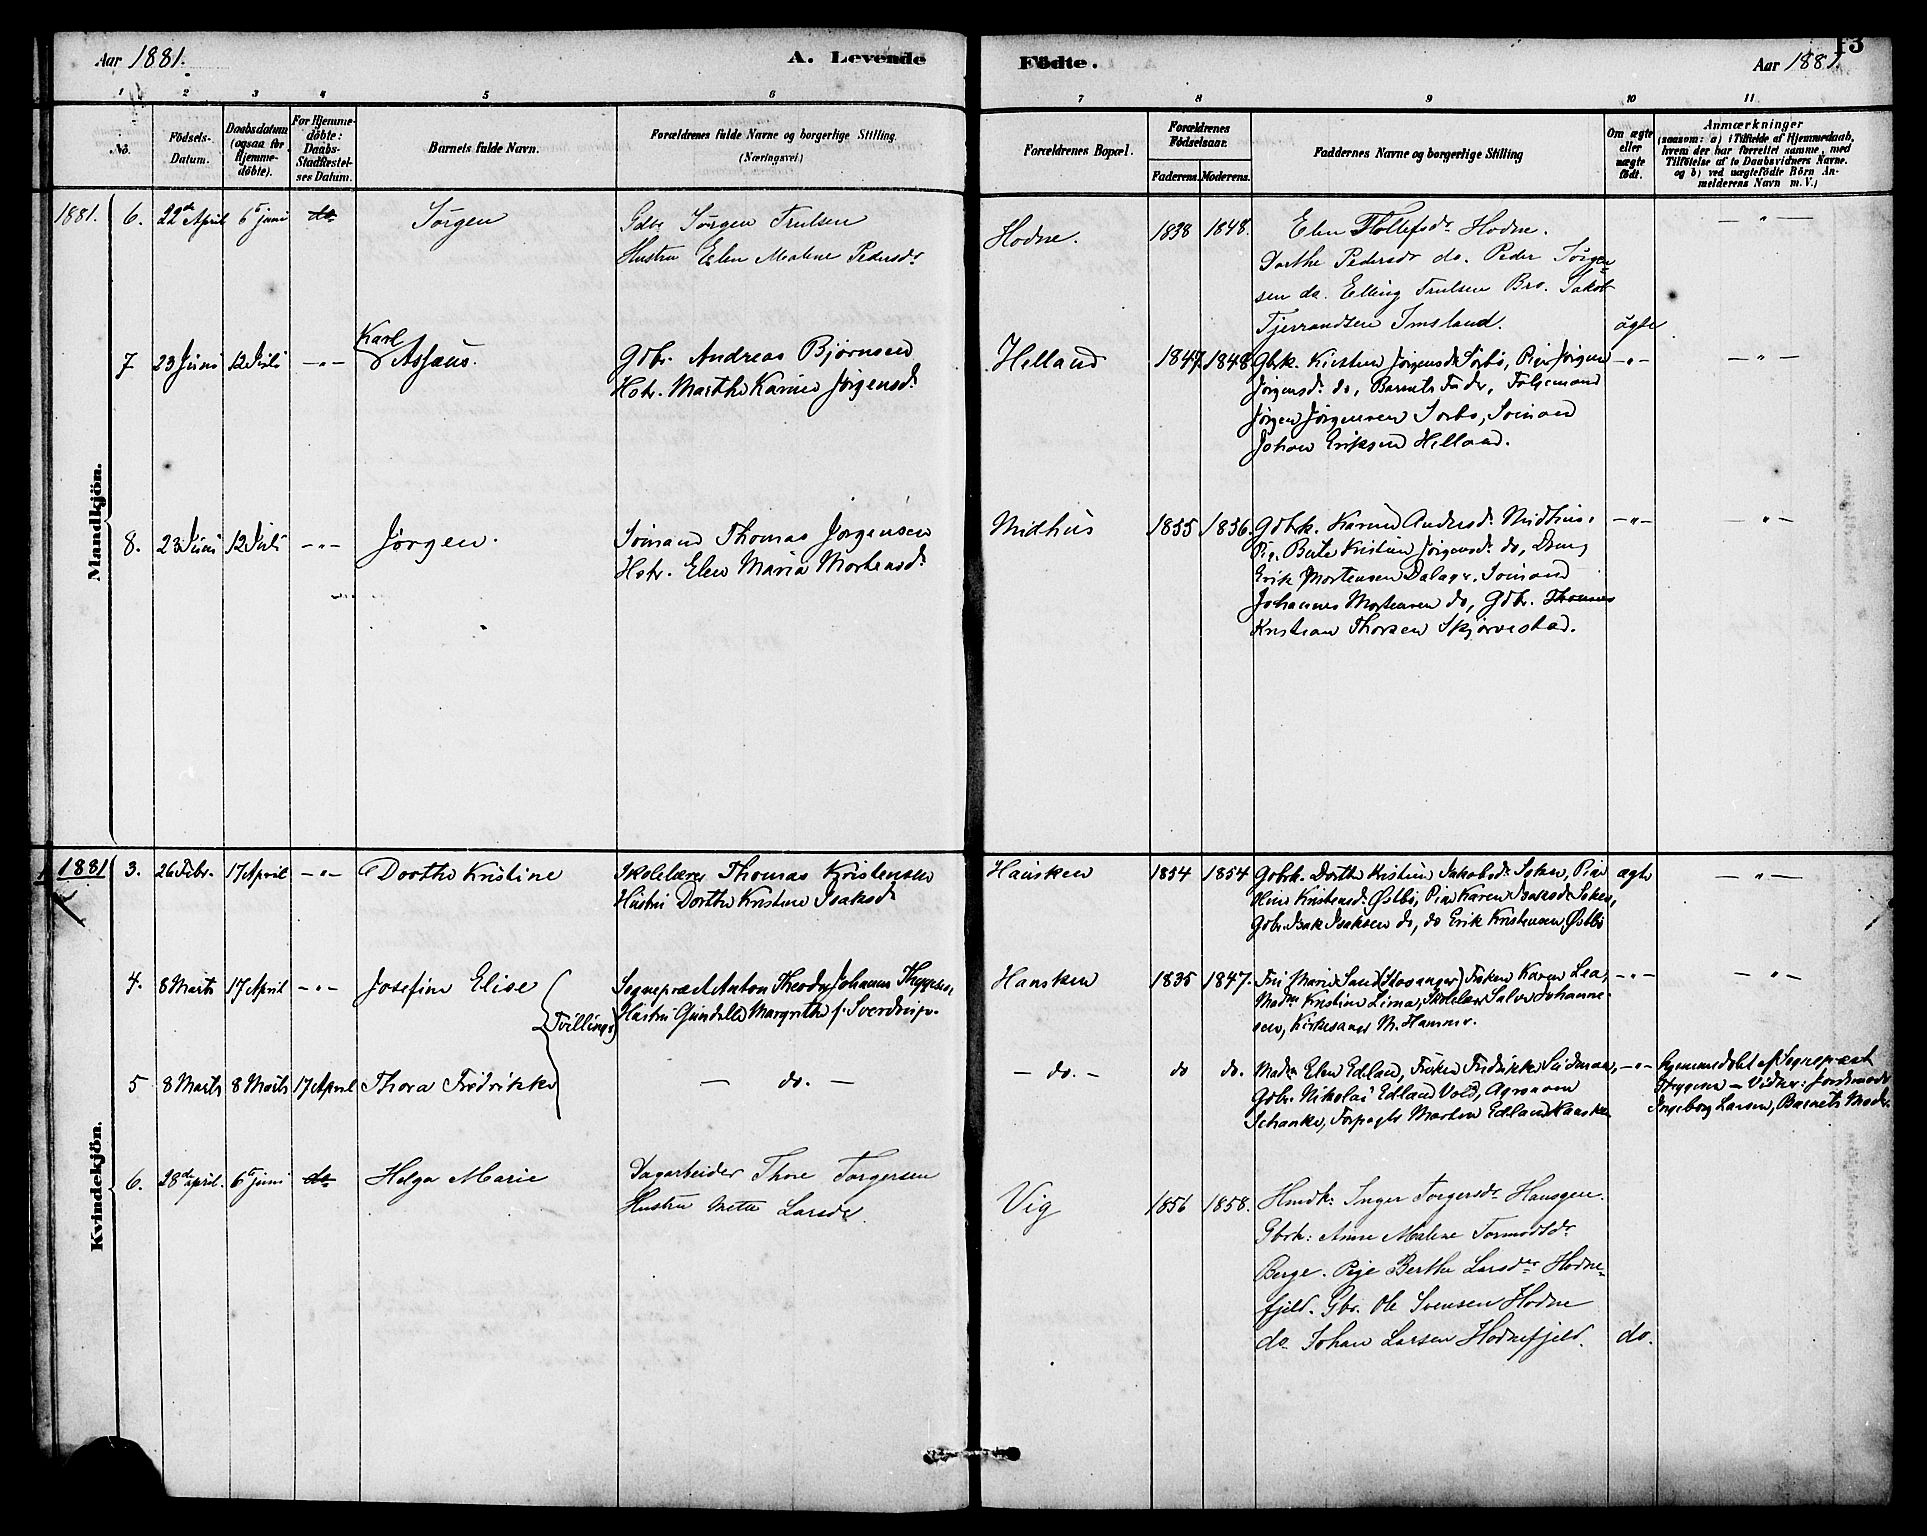 13
Aar 1881.
A. Levende
Födte.
Aar 1881.
1 2 3 4 5 6 7 8 9 10 11
No.
Födsels-
Datum.
Daabsdatum
(ogsaa for
Hjemme-
döbte).
For Hjemme-
döbte:
Daabs-
Stadfæstel-
ses Datum.
Barnets fulde Navn.
Forældrenes fulde Navne og borgerlige Stilling.
(Næringsvei)
Forældrenes Bopæl.
Forældrenes
Födselsaar.
Faderens. Moderens.
Faddernes Navne og borgerlige Stilling
Om ægte
eller
uægte
födt.
Anmærkninger
(saasom: a) i Tilfælde af Hjemmedaab,
hvem der har forrettet samme, med
Tilföielse af to Daabsvidners Navne.
og b) ved uægtefödte Börn An-
melderens Navn m. V.)
Mandkjön.
1881. 6. 22de April 6te juni do
Jørgen
Gdbr Jørgen Trulsen
Hustru Elen Malene Pedersdr
Hodne. 1838 1848.
Elen Tollefsdr Hodne.
Dorthe Pedersdr do. Peder Jørgen-
sen do. Elling Trulsen Bro. Jakob
Tjerrandsen Imsland.
ägte
— " —
7 23 Juni 12 Juli — " —
Karl
Assaus.
Gdbr. Andreas Bjørnsen
Hstr. Marthe Karine Jørgensdr
Helland 1847. 1848
Gbrk. Kirstine Jørgensdr Sørbø, Pige Jørgine
Jørgensdr do, Barnets Fader,
Jørgen Jørgensen Sørbø, Sømand
Johan Eriksen Helland.
— " —
— " —
8. 23 Juni 12 Juli — " —
Jørgen.
Sømand Thomas Jørgensen
Hstr. Elen Maria Mortensdr
Midhus 1855 1856.
Gdbrk. Karine Andersdr Midhus.
Pig. Berte Kristine Jørgensdr do, Dreng
Erik Mortensen Dalager, Sømand
Johannes Mortensen do, Gdbr. Thomas
Kristian Thorsen Skjørvestad.
— " —
— " —
Kvindekjön.
1881 3. 26 Febr. 17 April — " —
Dorthe Kristine
Skolelærer Thomas Kristensen
Hustru Dorthe Kristine Isaksdr
Hausken 1854 1854
Gdbrk. Dorthe Kristine Jakobsdr Soken, Pige
Oline Kristensdr Østbø, Pige Karen Isaksdr Soken,
Gdbr. Isak Isaksen do, do Erik Kristensen Østbø
ægte
— " —
4. 8 Marts 17 April — " —
Josefine Elise
Tvillinger
Sognepræst Anton Theodor Johannes Thygesen
Hustru Gunelle Margrethe f. Sverdrup.
Hausken 1835 1847.
Fru Marie Sand (Stavanger) Frøken Karen Lea,
Madm Kristine Lima, Skolelær. Salve Johanne-
sen, Kirkesanger M. Hammer.
— " —
— " —
5 8 Marts 8 Marts 17 April
Thora Fredrikke
— do. —
— do. — do do.
Madm Elen Edland, Frøken Fredrikke
Gdbr. Nikolai Edland Vold, Agronom
Schanke, Forpagter Morten Edland Hausken
— " —
Hjemmedøbt af Sognepræst
Thygesen — Vidner: Jordemoder
Ingeborg Larsen, Barnets Moder.
6. 28de april. 6te juni do
Helga Marie
Dagarbeider Thore Torgersen
Hustru Mette Larsdr
Vig 1856 1858.
Hmdk: Inger Torgersdr Hausgen.
Gbrk: Anne Malene Tormodsdr
Berge. Pige Berthe Larsdr Hodne-
fjeld. Gbr. Ole Svensen Hodne
do Johan Larsen Hodnefjeld.
do.